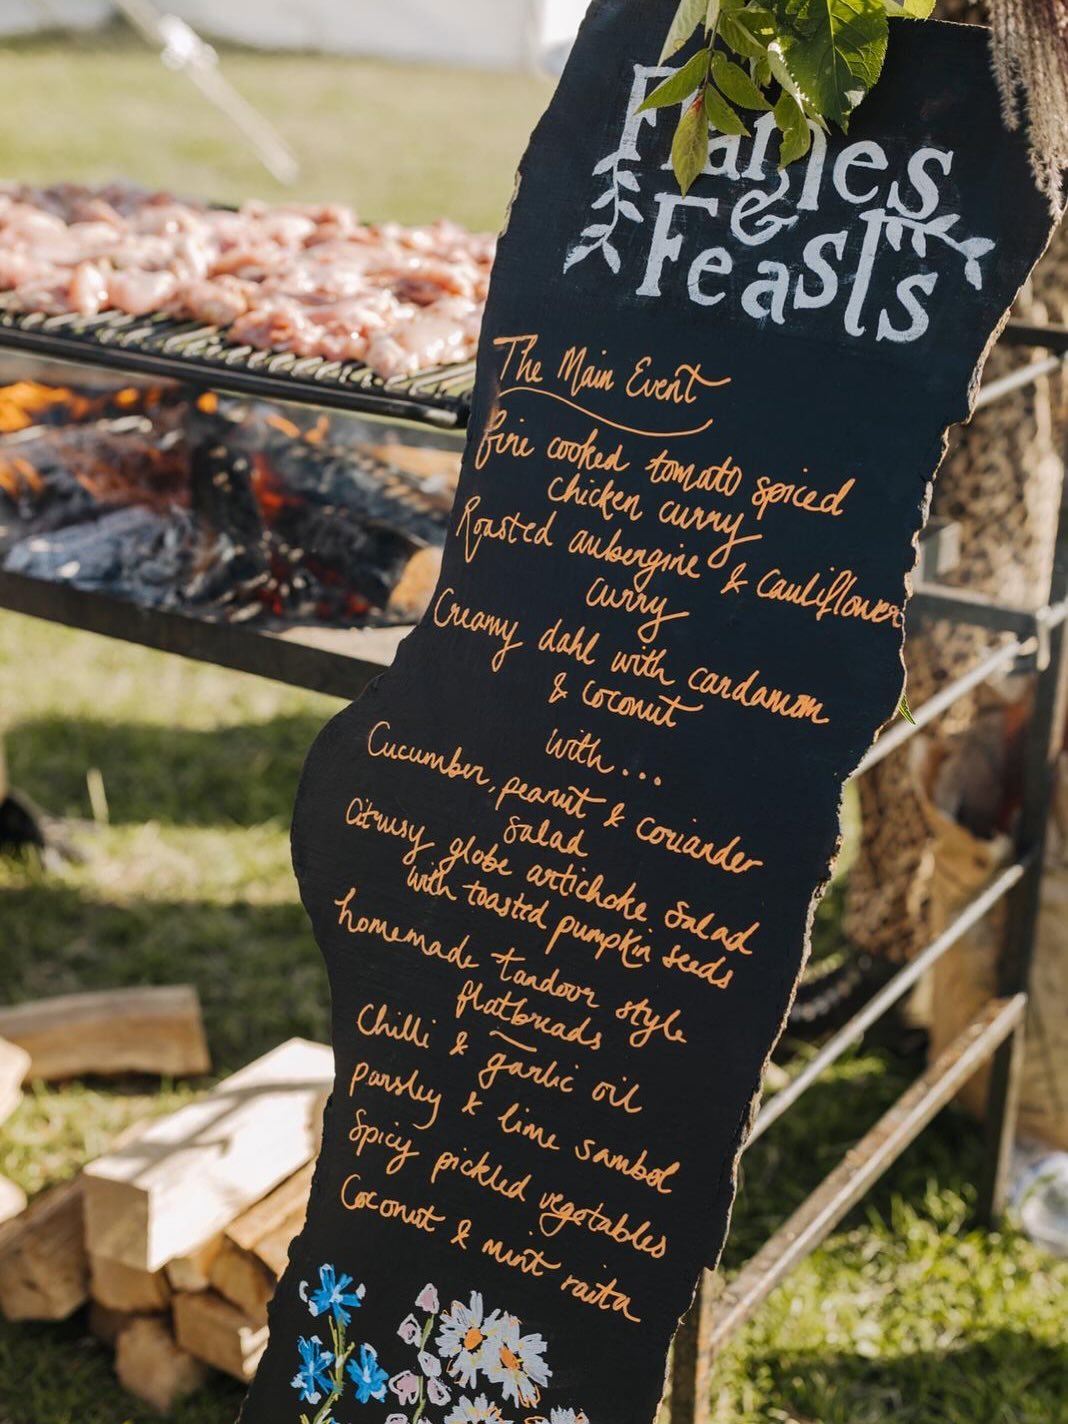 Flames
&
Feasts
The Main Event
fire cooked tomato spiced
chicken curry
Roasted aubergine & cauliflower
curry
Creamy dahl with cardamom
& coconut
with...
Cucumber, peanut & coriander
salad
Citrusy globe artichoke salad
with toasted pumpkin seeds
homemade tandoor style
flatbreads
Chilli & garlic oil
parsley & lime sambol
Spicy pickled vegetables
Coconut & mint raita